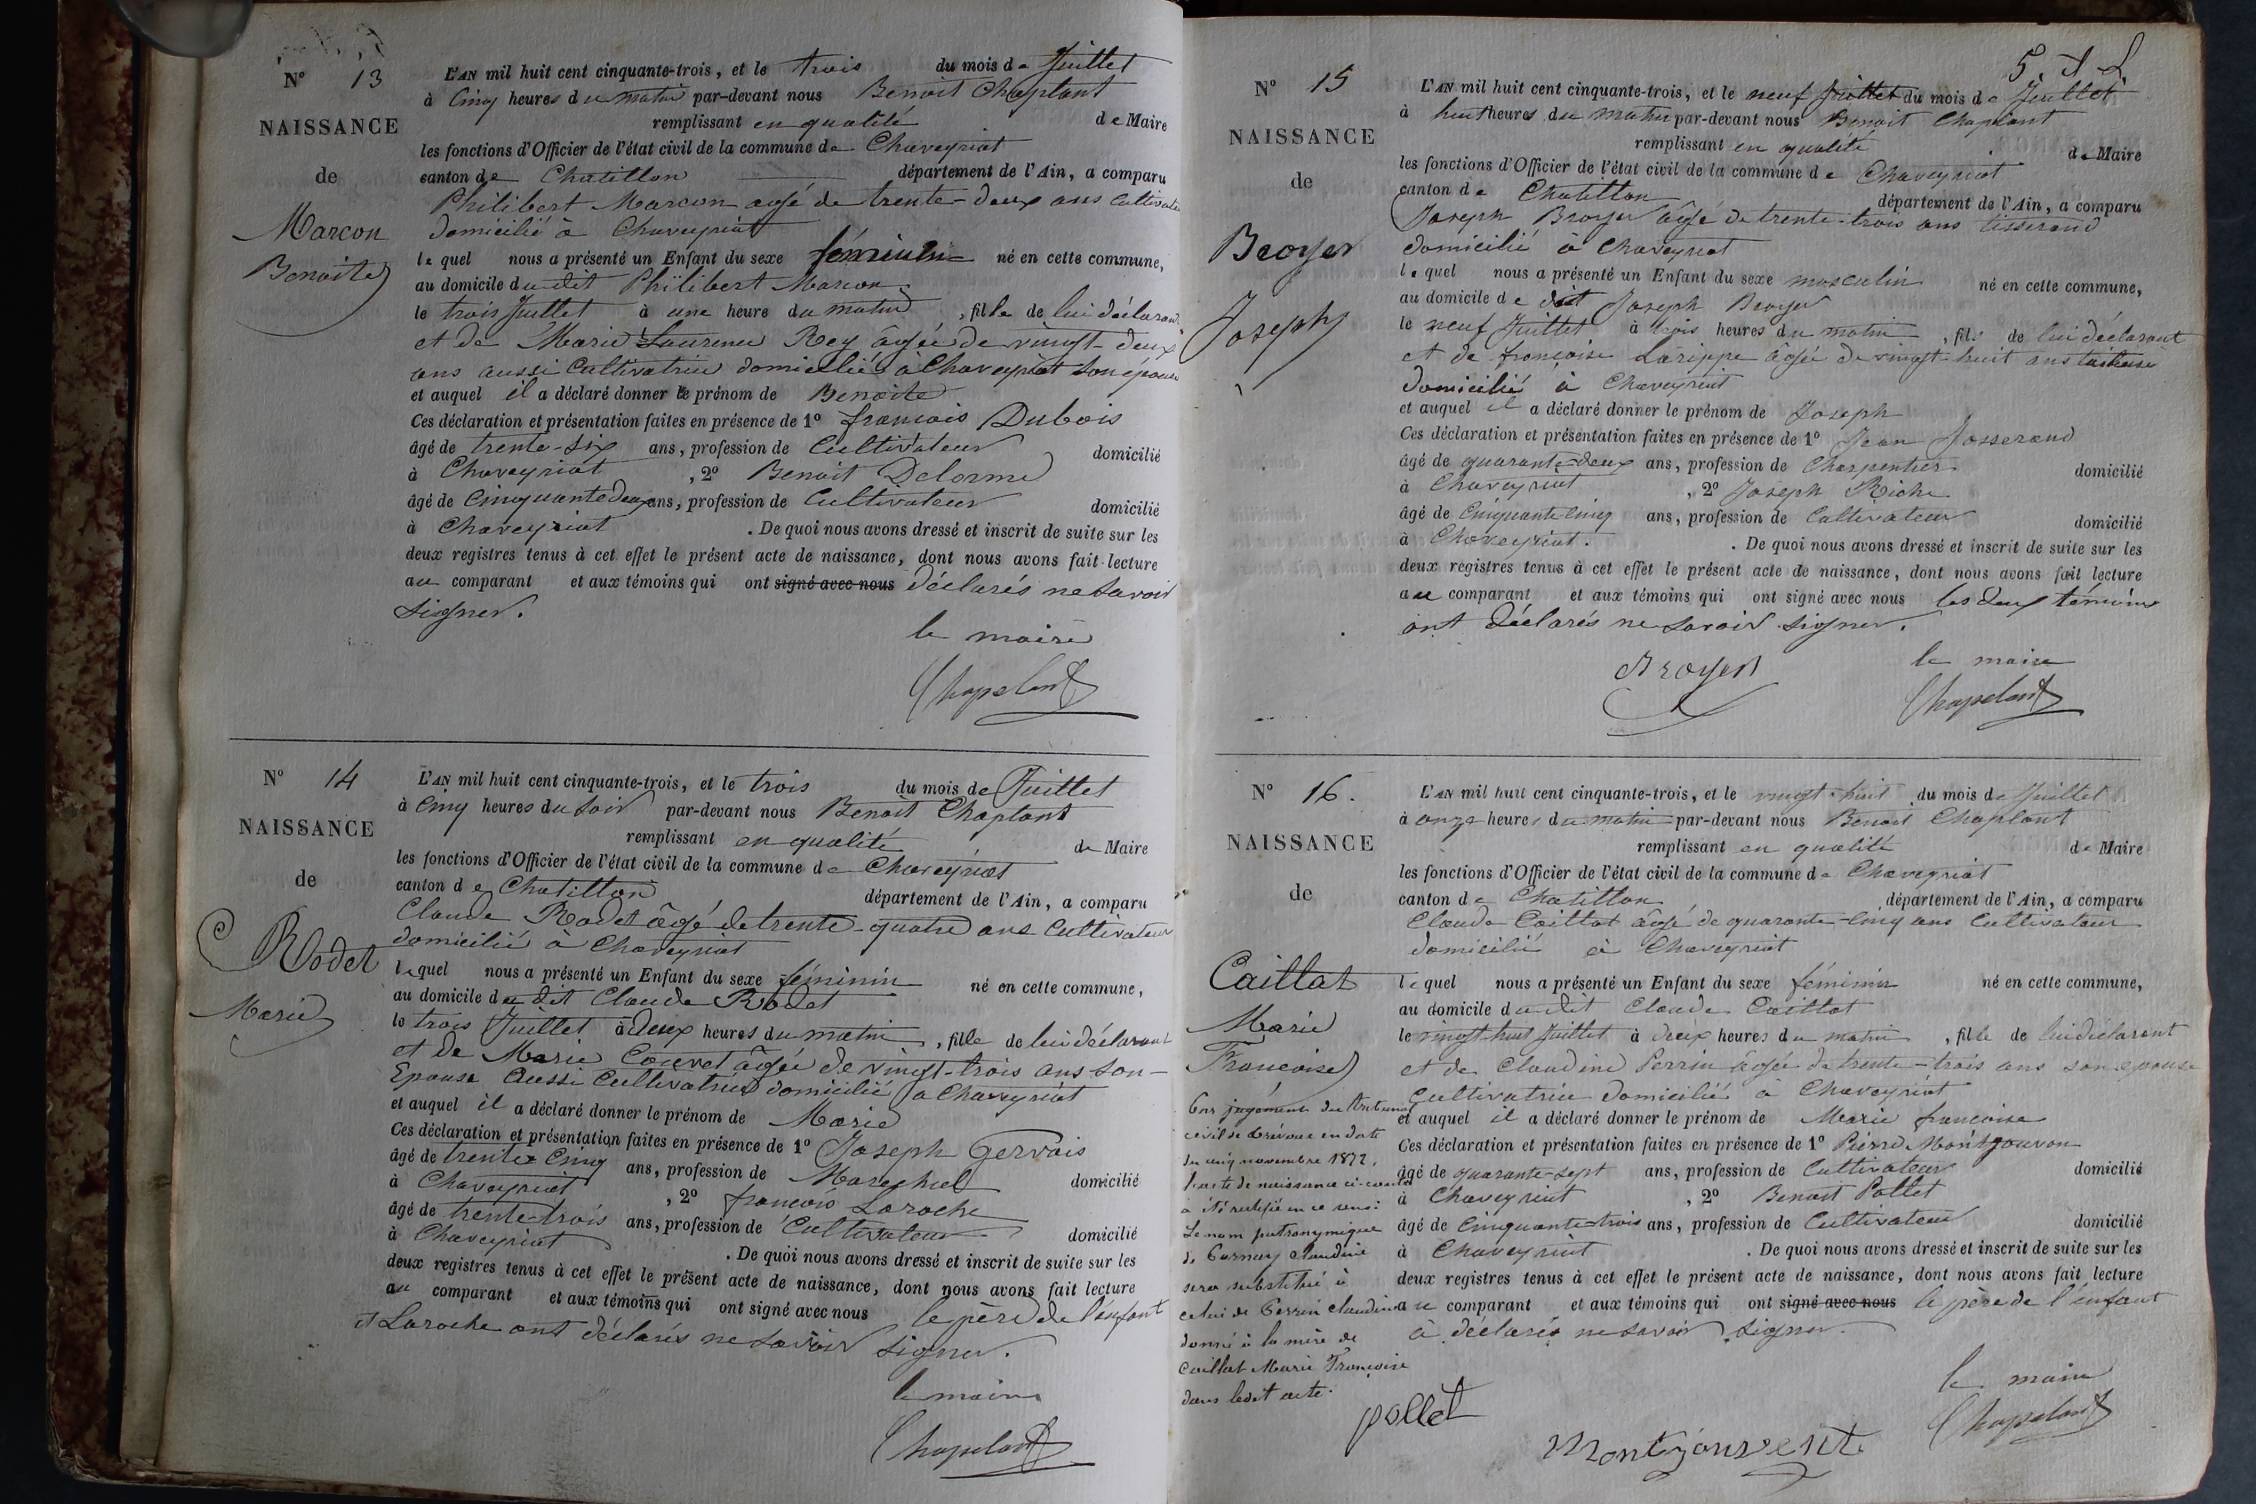 N° 13
NAISSANCE
de
Marcon
Benoite
L'AN mil huit cent cinquante-trois, et le trois du mois de Juillet
à Cinq heures du matin par-devant nous Benoit Chaplant
remplissant en qualité de Maire
les fonctions d'Officier de l'état civil de la commune de Chaveyriat
canton de Chatillon département de l'Ain, a comparu
Philibert Marcon agé de trente-deux ans Cultivateur
domicilié à Chaveyriat
lequel nous a présenté un Enfant du sexe féminin né en cette commune,
au domicile du dit Philibert Marcon
le trois Juillet à une heure du matin, fille de lui déclarant
et de Marie Laurence Rey âgée de vingt-deux
ans aussi Cultivatrice domicilié à Chaveyriat son épouse
et auquel il a déclaré donner le prénom de Benoite
Ces déclaration et présentation faites en présence de 1° francois Dubois
âgé de trente-six ans, profession de Cultivateur domicilié
à Chaveyriat, 2° Benoit Delorme
âgé de Cinquante deux ans, profession de Cultivateur domicilié
à Chaveyriat. De quoi nous avons dressé et inscrit de suite sur les
deux registres tenus à cet effet le présent acte de naissance, dont nous avons fait lecture
au comparant et aux témoins qui ont signé avec nous déclarés ne savoir
signer.
le maire
Chapelant
N° 14
NAISSANCE
de
Rodet
Marie
L'AN mil huit cent cinquante-trois, et le trois du mois de Juillet
à Cinq heures du Soir par-devant nous Benoit Chaplant
remplissant en qualité de Maire
les fonctions d'Officier de l'état civil de la commune de Chaveyriat
canton de Chatillon département de l'Ain, a comparu
Claude Rodet âgé de trente-quatre ans Cultivateur
domicilié à Chaveyriat
lequel nous a présenté un Enfant du sexe féminin né en cette commune,
au domicile du dit Claude Rodet
le trois Juillet à Deux heures du matin, fille de lui déclarant
et de Marie Couvet âgée de vingt-trois ans son-
Epouse Aussi Cultivatrice domicilié à Chaveyriat
et auquel il a déclaré donner le prénom de Marie
Ces déclaration et présentation faites en présence de 1° Joseph Gervais
âgé de trente Cinq ans, profession de Marechal domicilié
à Chaveyriat, 2° francois Laroche
âgé de trente-trois ans, profession de Cultivateur domicilié
à Chaveyriat. De quoi nous avons dressé et inscrit de suite sur les
deux registres tenus à cet effet le présent acte de naissance, dont nous avons fait lecture
au comparant et aux témoins qui ont signé avec nous le père de l'enfant
et Laroche ont déclarés ne savoir signer.
le maire
Chapelant
N° 15
NAISSANCE
de
Broyer
Joseph
L'AN mil huit cent cinquante-trois, et le neuf Juillet du mois de Juillet
à huit heures du matin par-devant nous Benoit Chaplant
remplissant en qualité de Maire
les fonctions d'Officier de l'état civil de la commune de Chaveyriat
canton de Chatillon département de l'Ain, a comparu
Joseph Broyer âgé de trente-trois ans tisserand
domicilié à Chaveyriat
lequel nous a présenté un Enfant du sexe masculin né en cette commune,
au domicile de dit Joseph Broyer
le neuf Juillet à trois heures du matin, fils de lui déclarant
et de françoise Larippe âgée de vingt-huit ans
domicilié à Chaveyriat
et auquel il a déclaré donner le prénom de Joseph
Ces déclaration et présentation faites en présence de 1° Jean Josserand
âgé de quarante-deux ans, profession de Charpentier domicilié
à Chaveyriat, 2° Joseph Riche
âgé de Cinquante Cinq ans, profession de Cultivateur domicilié
à Chaveyriat. De quoi nous avons dressé et inscrit de suite sur les
deux registres tenus à cet effet le présent acte de naissance, dont nous avons fait lecture
au comparant et aux témoins qui ont signé avec nous les deux témoins
ont déclarés ne savoir signer.
Broyer
le maire
Chapelant
N° 16.
NAISSANCE
de
Caillat
Marie
Françoise
Par jugement du tribunal
civil de Trévoux en date
du cinq novembre 1872,
l'acte de naissance ci-contre
a été rectifié en ce sens:
Le nom patronymique
de Carnay claudine
sera substitué à
celui de Perrin claudine
donné à la mère de
Caillat Marie Françoise
dans ledit acte.
L'AN mil huit cent cinquante-trois, et le vingt-huit du mois de Juillet
à onze heures du matin par-devant nous Benoit Chaplant
remplissant en qualité de Maire
les fonctions d'Officier de l'état civil de la commune de Chaveyriat
canton de Chatillon département de l'Ain, a comparu
Claude Caillat âgé de quarante-cinq ans Cultivateur
domicilié à Chaveyriat
lequel nous a présenté un Enfant du sexe féminin né en cette commune,
au domicile du dit Claude Caillat
le vingt-huit Juillet à deux heures du matin, fille de lui déclarant
et de Claudine Perrin âgée de trente-trois ans son epouse
Cultivatrice domicilié à Chaveyriat
et auquel il a déclaré donner le prénom de Marie françoise
Ces déclaration et présentation faites en présence de 1° Pierre Montjouvon
âgé de quarante-sept ans, profession de Cultivateur domicilié
à Chaveyriat, 2° Benoit Pollet
âgé de Cinquante-trois ans, profession de Cultivateur domicilié
à Chaveyriat. De quoi nous avons dressé et inscrit de suite sur les
deux registres tenus à cet effet le présent acte de naissance, dont nous avons fait lecture
au comparant et aux témoins qui ont signé avec nous le père de l'enfant
à déclarés ne savoir signer.
le maire
Chapelant
pollet
Montjouvent